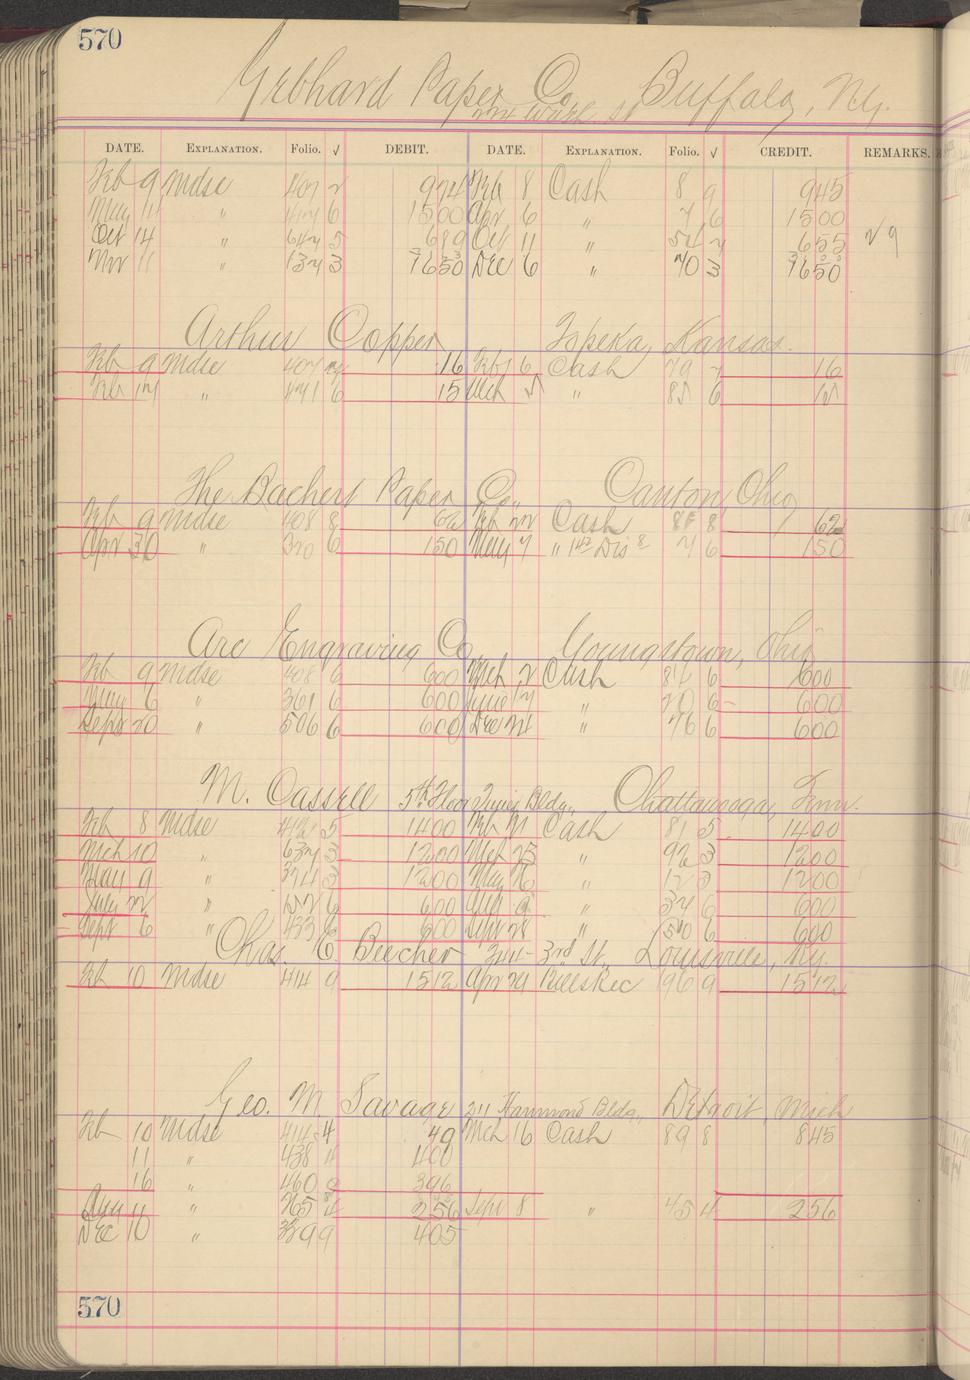 570
Gebhard Paper Co. Buffalo, N.Y.
DATE. EXPLANATION. Folio. √ DEBIT. DATE. EXPLANATION. Folio. √ CREDIT. REMARKS.
Feb 9 Mdse 407 2 974 Feb 8 Cash 8 9 945
May 11 " 6 1500 Apr 6 " 7 6 1500
Oct 14 " 647 5 689 Oct 11 " 54 7 655 √ 9
Mar 11 " 137 3 7650 Dec 6 " 70 3 7650
Arthur Copper Topeka, Kansas.
Feb 9 Mdse 407 16 Feb 6 Cash 79 7 16
Feb 17 " 471 6 15 Mch 5 " 85 6 15
The Bachert Paper Co., Canton, Ohio
Feb 9 Mdse 408 8 62 Feb 22 Cash 8 62
Apr 30 " 320 6 150 May 7 " Dis 7 6 150
Arc Engraving Co. Youngstown, Ohio
Feb 9 Mdse 408 6 600 Mch 2 Cash 84 6 600
May 6 " 361 6 600 June 17 " 20 6 600
Sept 20 " 506 6 600 Dec 24 " 76 6 600
M. Cassell 5th Floor Times Bldg., Chattanooga, Tenn.
Feb 8 Mdse 412 5 1400 Feb 21 Cash 81 5 1400
Mch 10 " 637 3 1200 Mch 23 " 92 3 1200
May 9 " 374 3 1200 May 26 " 12 3 1200
July 22 " 152 6 600 Aug 9 " 37 6 600
Sept 6 " 433 6 600 Sept 28 " 50 6 600
Chas. E. Beecher 344- 3rd St. Louisville, Ky.
Feb 10 Mdse 414 9 1512 Apr 29 Bills Rec 96 9 1512
Geo. M. Savage 211 Hammond Bldg., Detroit, Mich
Feb 10 Mdse 414 4 49 Mch 16 Cash 89 8 845
11 " 438 4 400
16 " 460 396
Aug 11 " 265 4 256 Sept 8 " 45 4 256
Dec 10 " 389 9 405
570